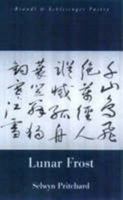 Brandl & Schlesinger Poetry
千山鳥飛
絕萬徑人
蹤滅孤舟
蓑笠翁獨
釣寒江雪
Lunar Frost
Selwyn Pritchard